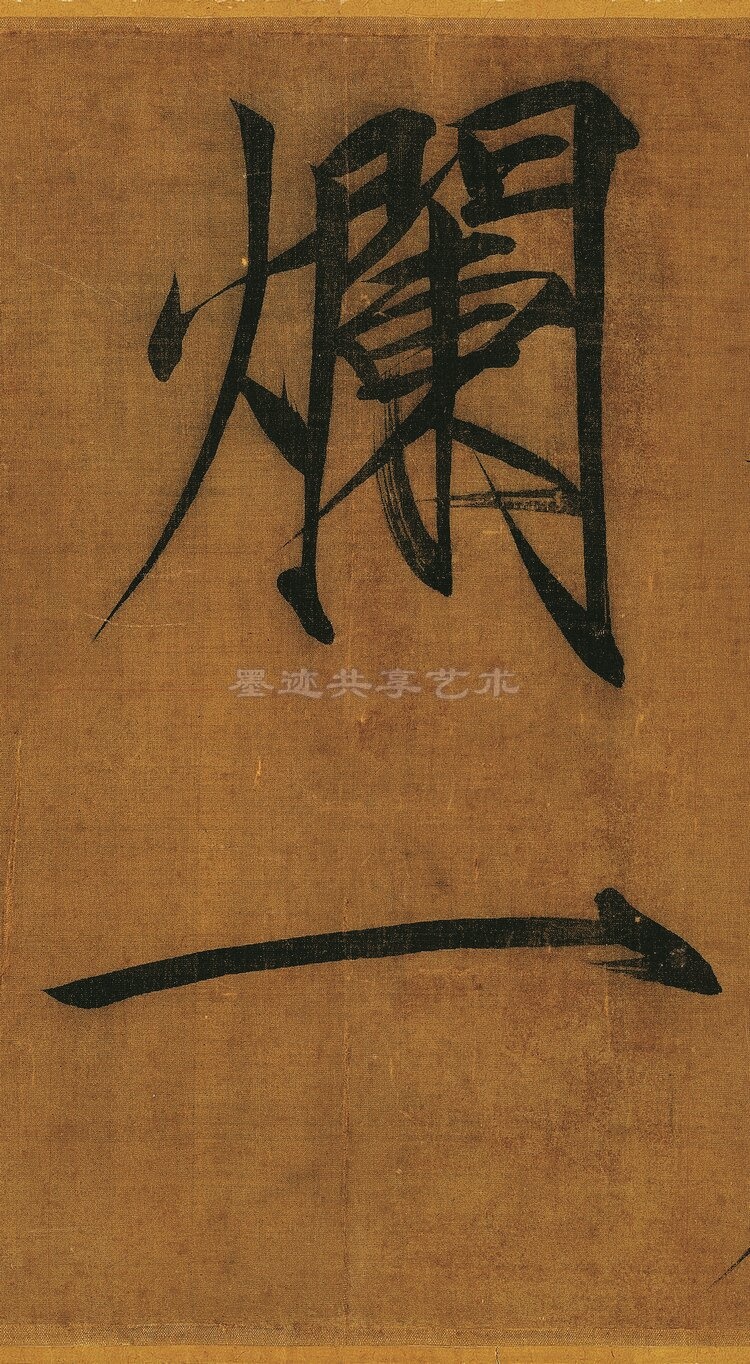 爛
一
墨迹共享艺术